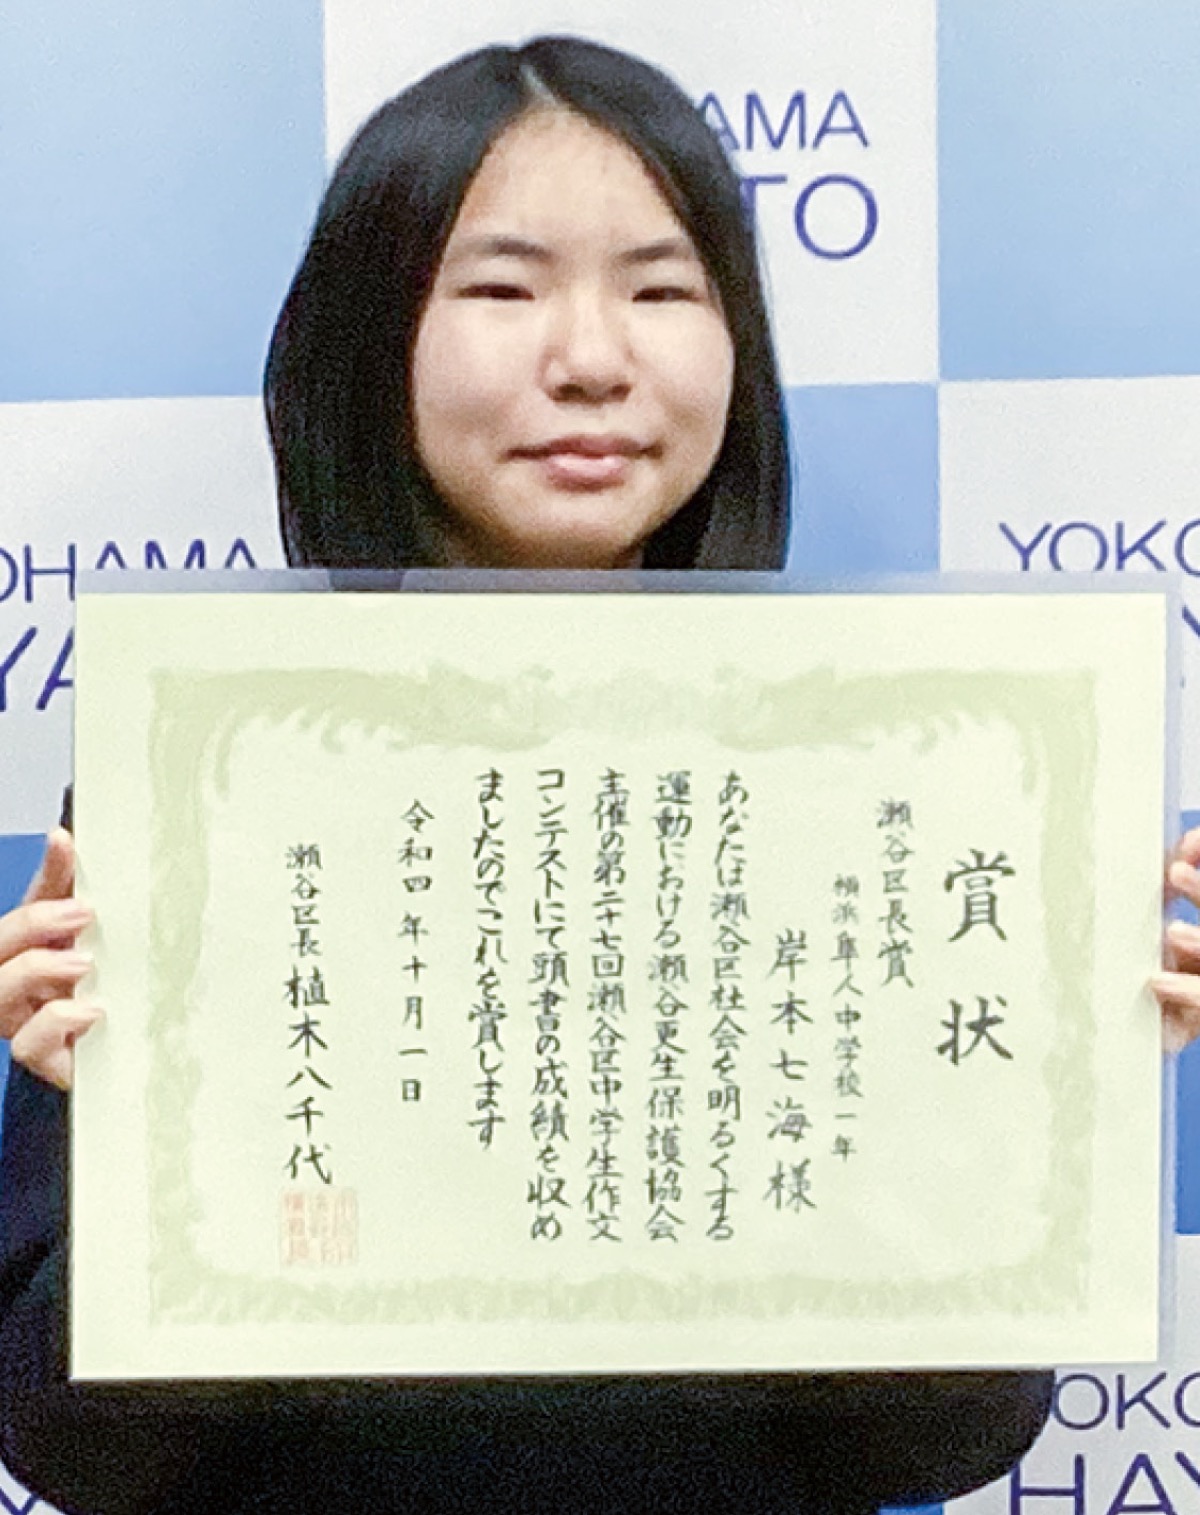 AMA
TO
OHAMA
YA
YOKO
賞状
瀬谷区長賞
横浜隼人中学校一年
岸本七海様
あなたは瀬谷区社会を明るくする
運動における瀬谷更生保護協会
主催の第二十七回瀬谷区中学生作文
コンテストにて頭書の成績を収め
ましたのでこれを賞します
令和四年十月一日
瀬谷区長植木八千代
OKO
HAY